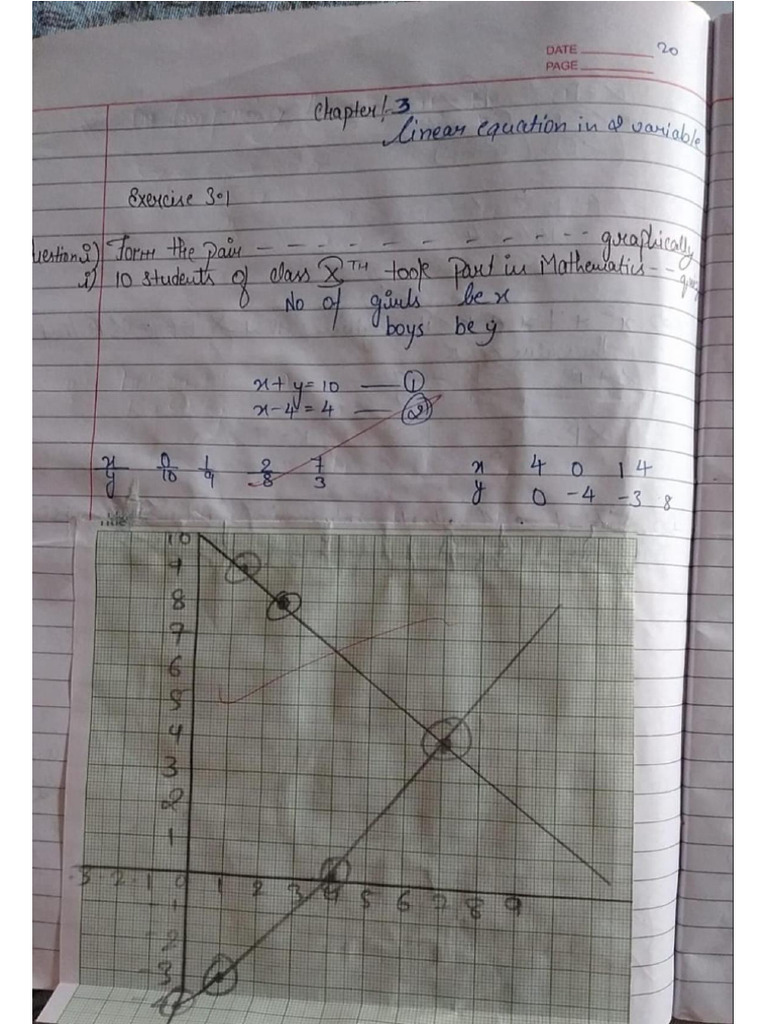 DATE 20
PAGE
Chapter 3
linear equation in 2 variable
Exercise 3.1
uestion 2) Form the pair - - - - - - - - - - - graphically
i) 10 students of class X TH took part in Mathematics - -
No of girls be x
boys be y
x + y = 10 — ①
x - 4 = 4 — ②
x 0 1 2 7
y 10 9 8 3
x 4 0 1 4
y 0 -4 -3 8
10
9
8
7
6
5
4
3
2
1
-3 -2 -1 0 1 2 3 4 5 6 7 8 9
-1
-2
-3
-4